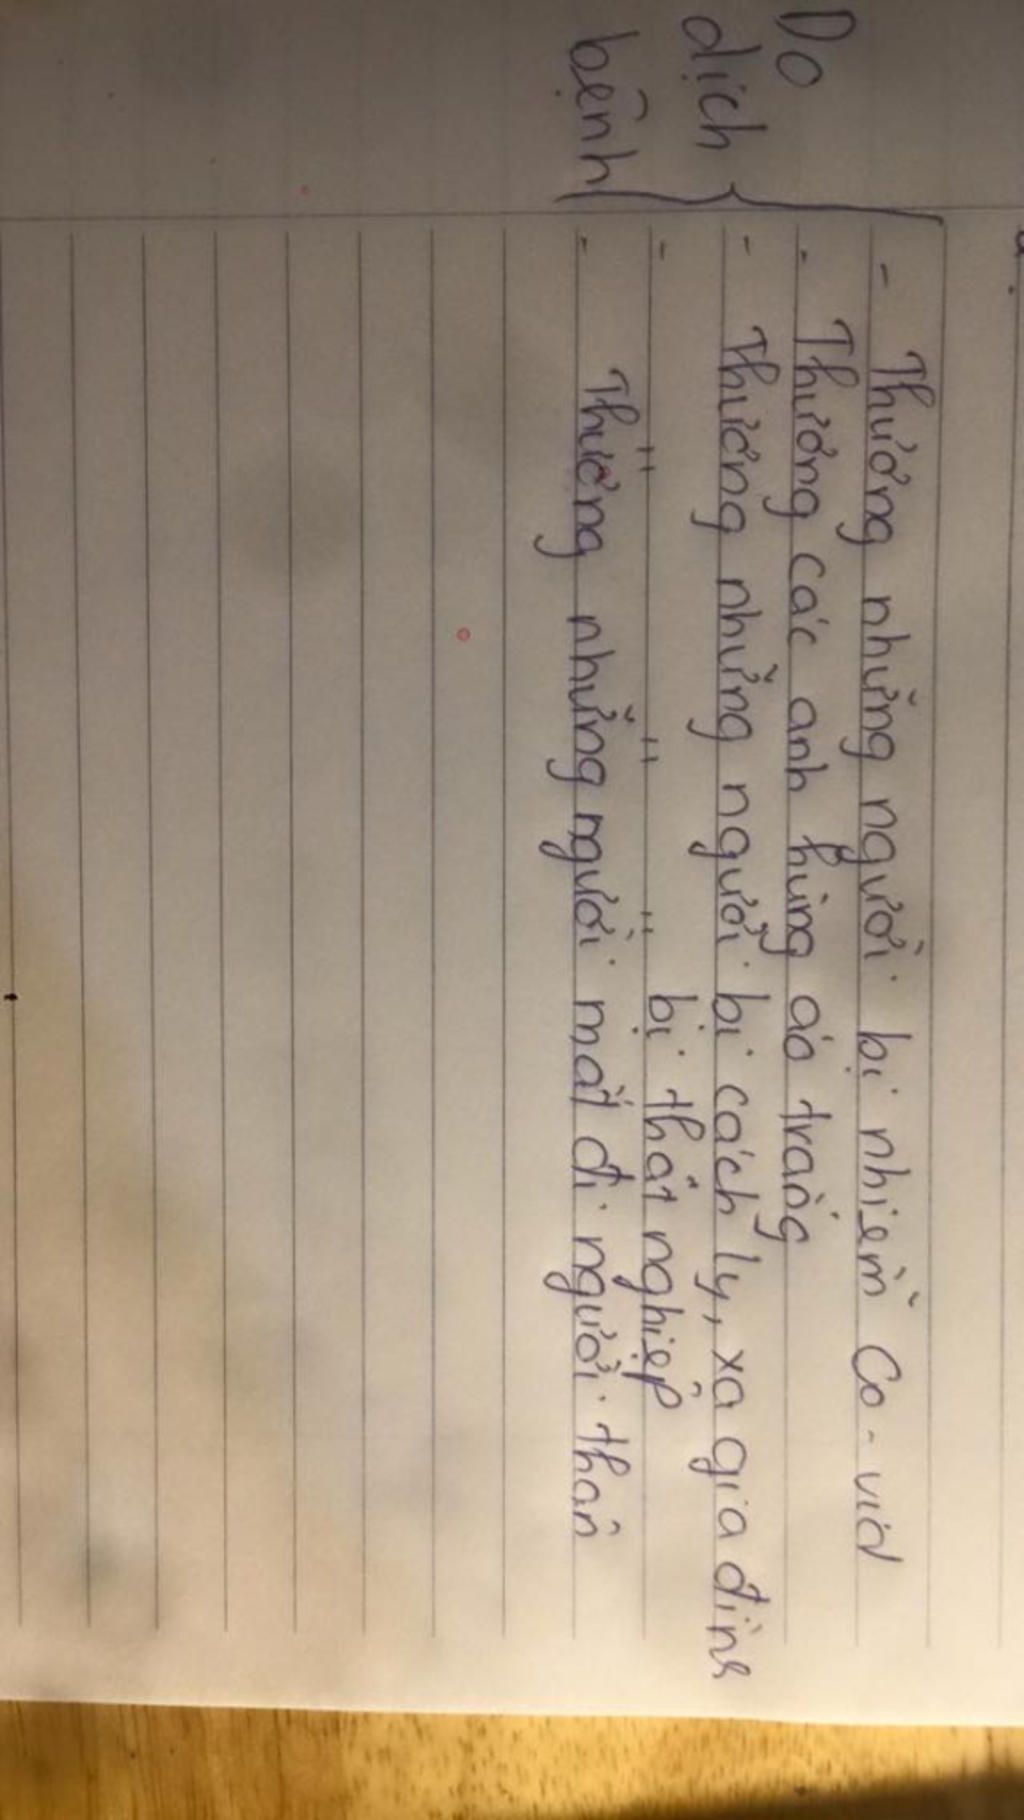 Do
dịch
bệnh
- Thương những người bị nhiễm Co-vid
- Thương các anh hùng áo trắng
- Thương những người bị cách ly, xa gia đình
- " " " bị thất nghiệp
- Thương những người mất đi người thân